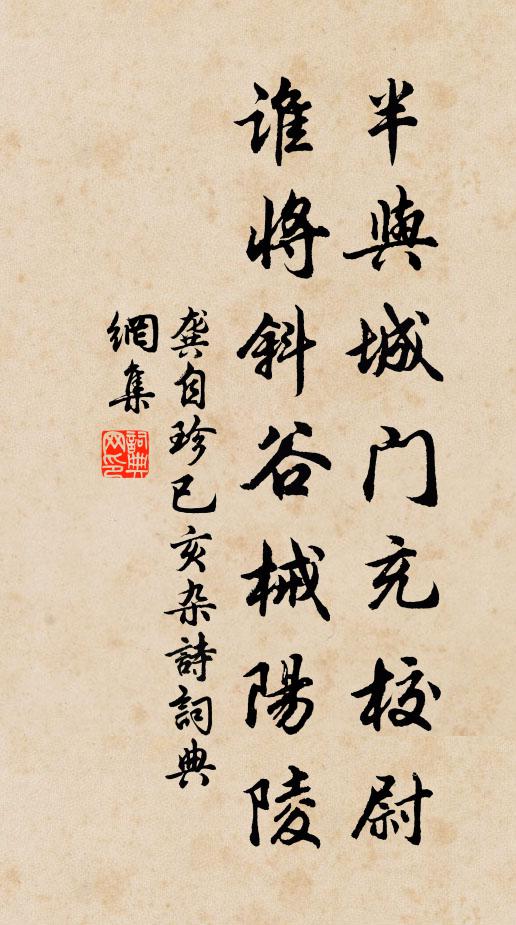 半與城门充校尉
誰將斜谷械陽陵
龚自珍已亥杂詩詞典
網集
詞典
网印